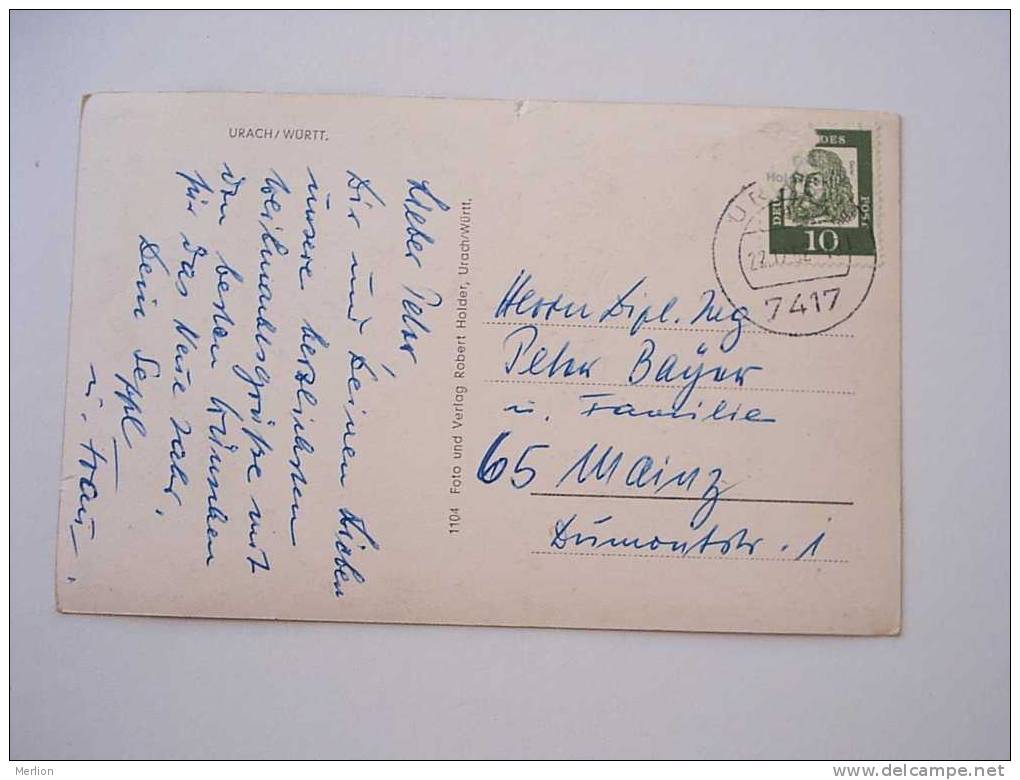 URACH/WÜRTT.
Lieber Peter,
Dir und Deinen Lieben
unsere herzlichsten
Weihnachtsgrüße mit
den besten Wünschen
für das Neue Jahr.
Dein Seppl
u. Frau
1104 Foto und Verlag Robert Holder, Urach/Württ.
10
7417
Herrn Dipl. Ing
Peter Bayer
u. Familie
65 Mainz
Dumontstr. 1
Merlion
www.delcampe.net